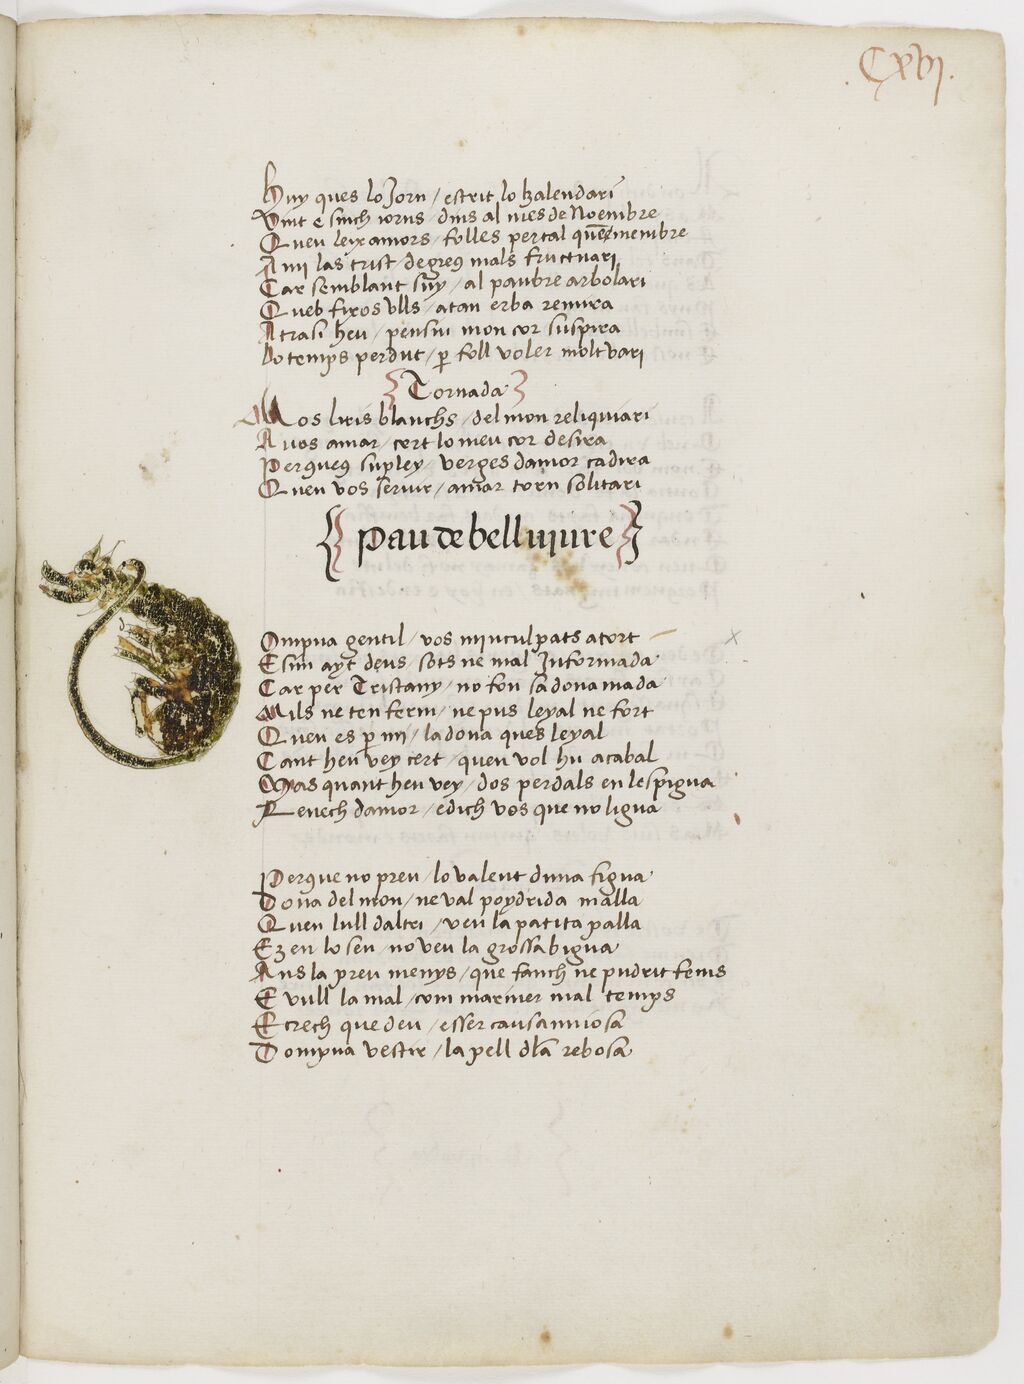 .CXVI.
Huy ques lo Jorn / escrit lo kalendari
Vint e sinch iorns / dins al mes de Noembre
Queu leixamors / folles per tal quem membre
Ami las trist / de greus mals fructuari
Car semblant suy / al paubre arbolari
Queb fixos ulls / atan erba remira
Atrasi heu / pensiu mon cor suspira
Lo temps perdut / p foll voler molt vari
Tornada
Mos liris blanchs / del mon reliquiari
A vos amar / cert lo meu cor desira
Perqueus supley / verges damor cadira
Quen vos servir / amar torn solitari
Pau de bellujure
Ompna gentil / vos minculpats atort
E sim ayt deus / sots ne mal Informada
Car per Tristany / no fon sa dona mada
Mils ne ten ferm / ne pus leyal ne fort
Queu es p mi / la dona ques leyal
Tant heu vey cert / quen vol hu acabal
Mas quant heu vey / dos perdals en lespigua
Renech damor / e dich vos que no ligua
Perque no preu / lo valent duna figua
Dona del mon / ne val poydrida malla
Quen lull daltri / veu la patita palla
Ez en lo seu / no veu la grossa bigua
Ans la preu menys / que fanch ne pudrit fems
E vull la mal / com mariner mal temps
E crech que deu / esser causa nniosa
Dompna vestir / la pell dla rebosa